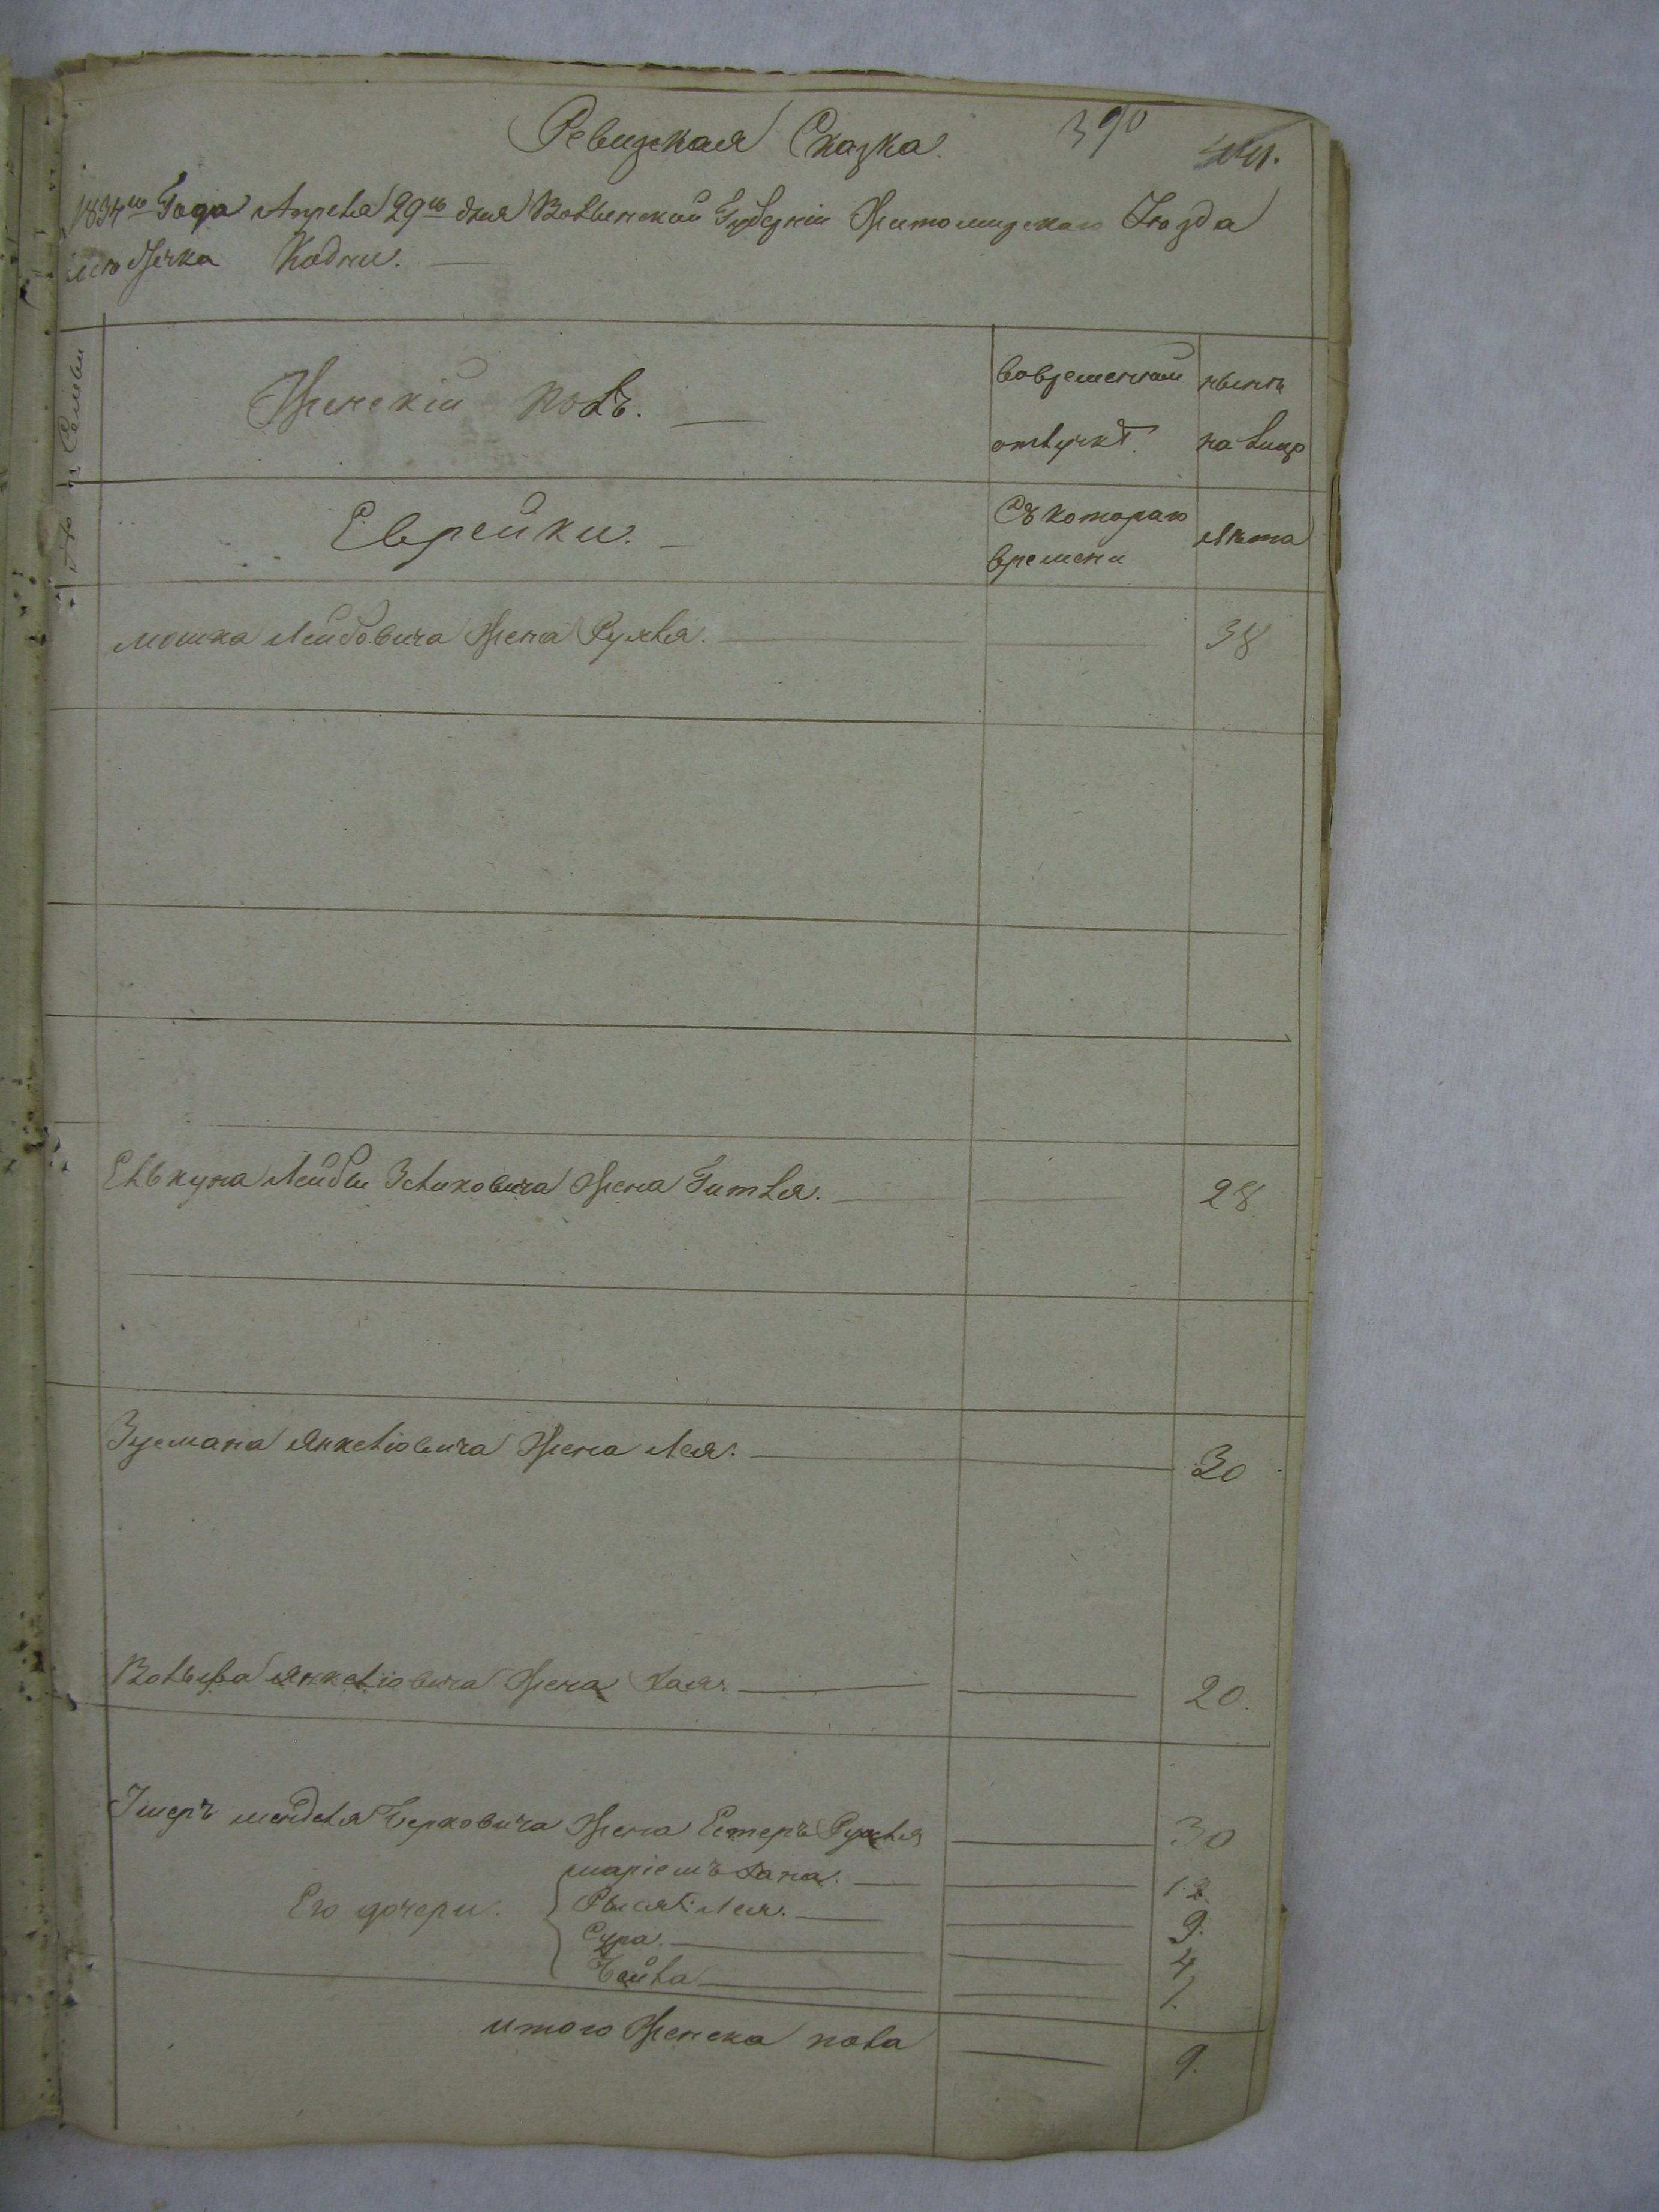 Ревизская Сказка. 390
1834го Года Апреля 29го дня Волынской Губерніи Житомирскаго Уезда
местечка Кодни.
№ Семьи
Женскій полъ.
вовременной отлучкѣ
нынѣ на лицо
Еврейки.
Съ котораго времени
Лѣта
Мошка Лейбовича Жена Рухля. 38
Елькуна Лейбы Зеликовича Жена Гитля. 28
Зусмана Янкеліовича Жена Лея. 30
Вольфа Янкеліовича Жена Хая. 20.
Умеръ Менделя Берковича Жена Естеръ Рухля 30
Его дочери. Маріемъ Хана. 12
Лея. 9.
Сура. 4
Бейла 1.
итого Женска пола 9.